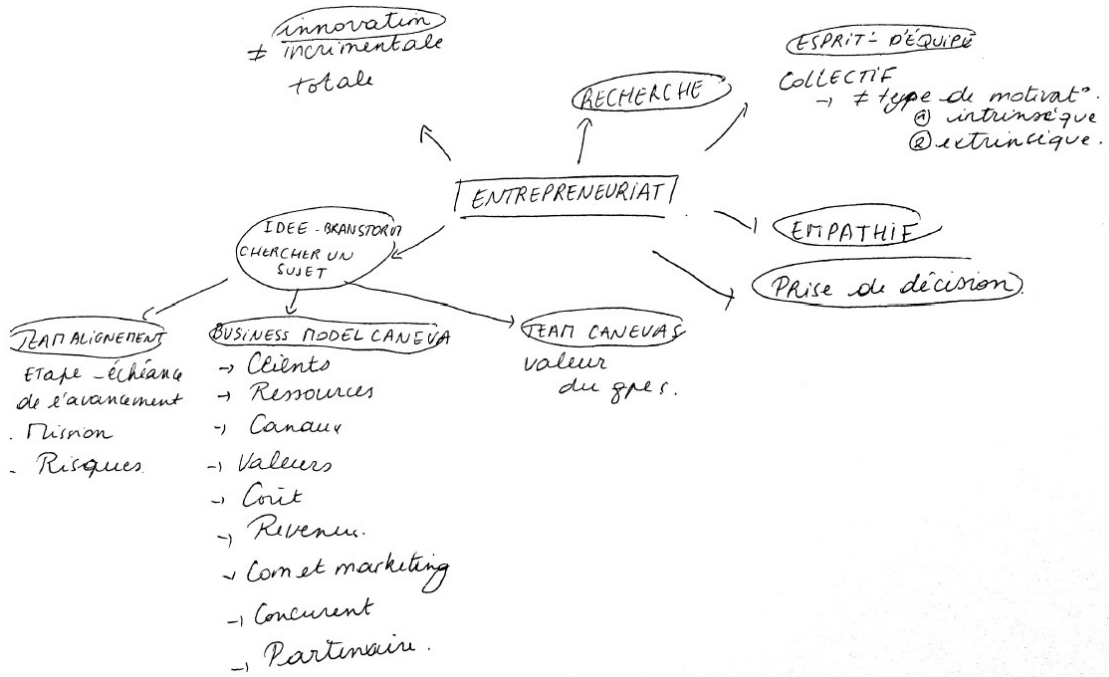 innovation
≠ incrimentale
totale
RECHERCHE
ESPRIT D'ÉQUIPE
COLLECTIF
→ ≠ type de motivat°.
① intrinséque
② extrinséque.
ENTREPRENEURIAT
EMPATHIE
PRise de décision
IDEE - BRANSTORM
CHERCHER UN
SUJET
TEAM ALIGNEMENT
ETape - échéance
de l'avancement
. Mission
- Risques.
BUSINESS MODEL CANEVA
→ Clients
→ Ressources
→ Canaux
→ Valeurs
→ Coût
→ Revenu.
→ Com et marketing
→ Concurent
→ Partenaire.
TEAM CANEVAS
valeur
du gpes.